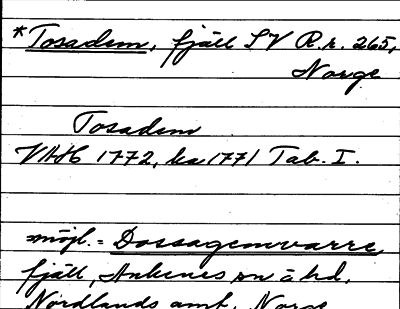 *Tosadem, fjäll SV R.r. 265,
Norge
Tosadem
VAH 1772, ka 1771 Tab. I.
möjl. = Dossagemvarre
fjäll, Ankenes sn å hd,
Nordlands amt, Norge